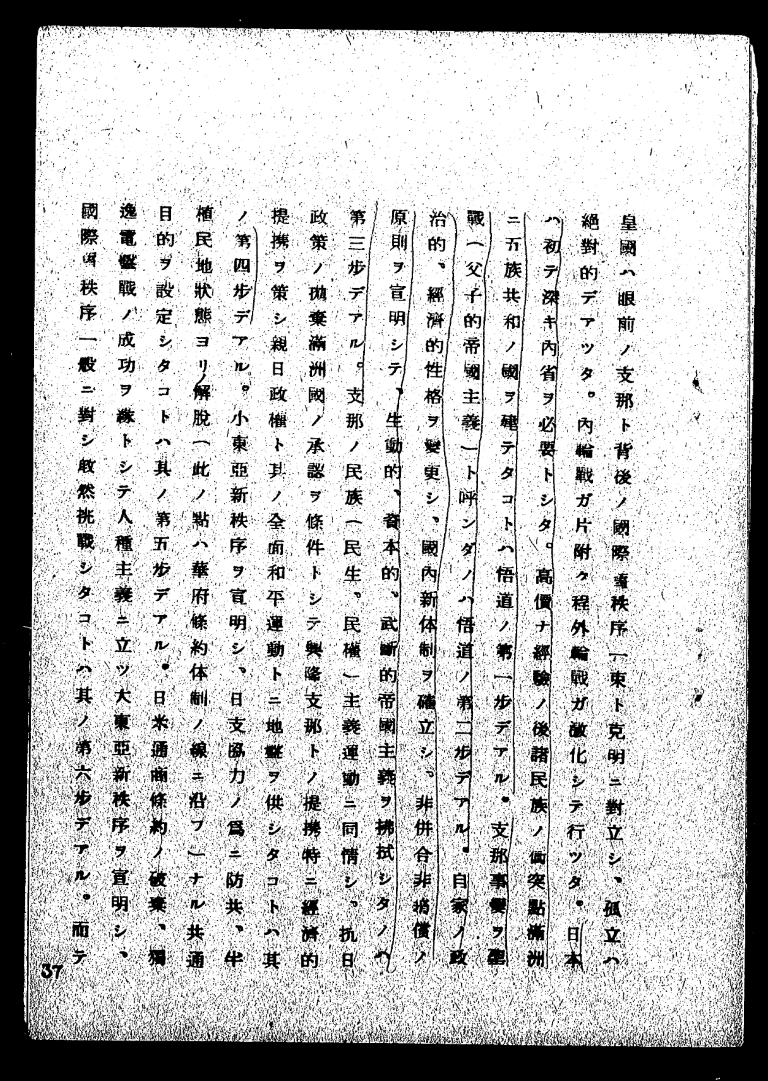 皇國ハ眼前ノ支那ト背後ノ國際秩序一束ト克明ニ對立シ、孤立ハ
絕對的デアツタ。內輪戰ガ片附ク程外輪戰ガ激化シテ行ツタ。日本
ハ初テ深キ內省ヲ必要トシタ。高價ナ經驗ノ後諸民族ノ衝突點滿洲
ニ五族共和ノ國ヲ建テタコトハ悟道ノ第一步デアル。支那事變ヲ聖
戰(父子的帝國主義)ト呼ンダノハ悟道ノ第二步デアル。自家ノ政
治的、經濟的性格ヲ變更シ、國內新体制ヲ確立シ、非併合非賠償ノ
原則ヲ宣明シテ、生動的、資本的、武斷的帝國主義ヲ拂拭シタノハ
第三步デアル。支那ノ民族(民生、民權)主義運動ニ同情シ、抗日
政策ノ拋棄滿洲國ノ承認ヲ條件トシテ興隆支那トノ提携特ニ經濟的
提携ヲ策シ親日政權ト其ノ全面和平運動トニ地盤ヲ供シタコトハ其
ノ第四步デアル。小東亞新秩序ヲ宣明シ、日支協力ノ爲ニ防共、半
植民地狀態ヨリノ解脫(此ノ點ハ華府條約体制ノ線ニ沿フ)ナル共通
目的ヲ設定シタコトハ其ノ第五步デアル。日米通商條約ノ破棄、獨
逸電擊戰ノ成功ヲ緣トシテ人種主義ニ立ツ大東亞新秩序ヲ宣明シ、
國際秩序一般ニ對シ敢然挑戰シタコトハ其ノ第六步デアル。而テ
37